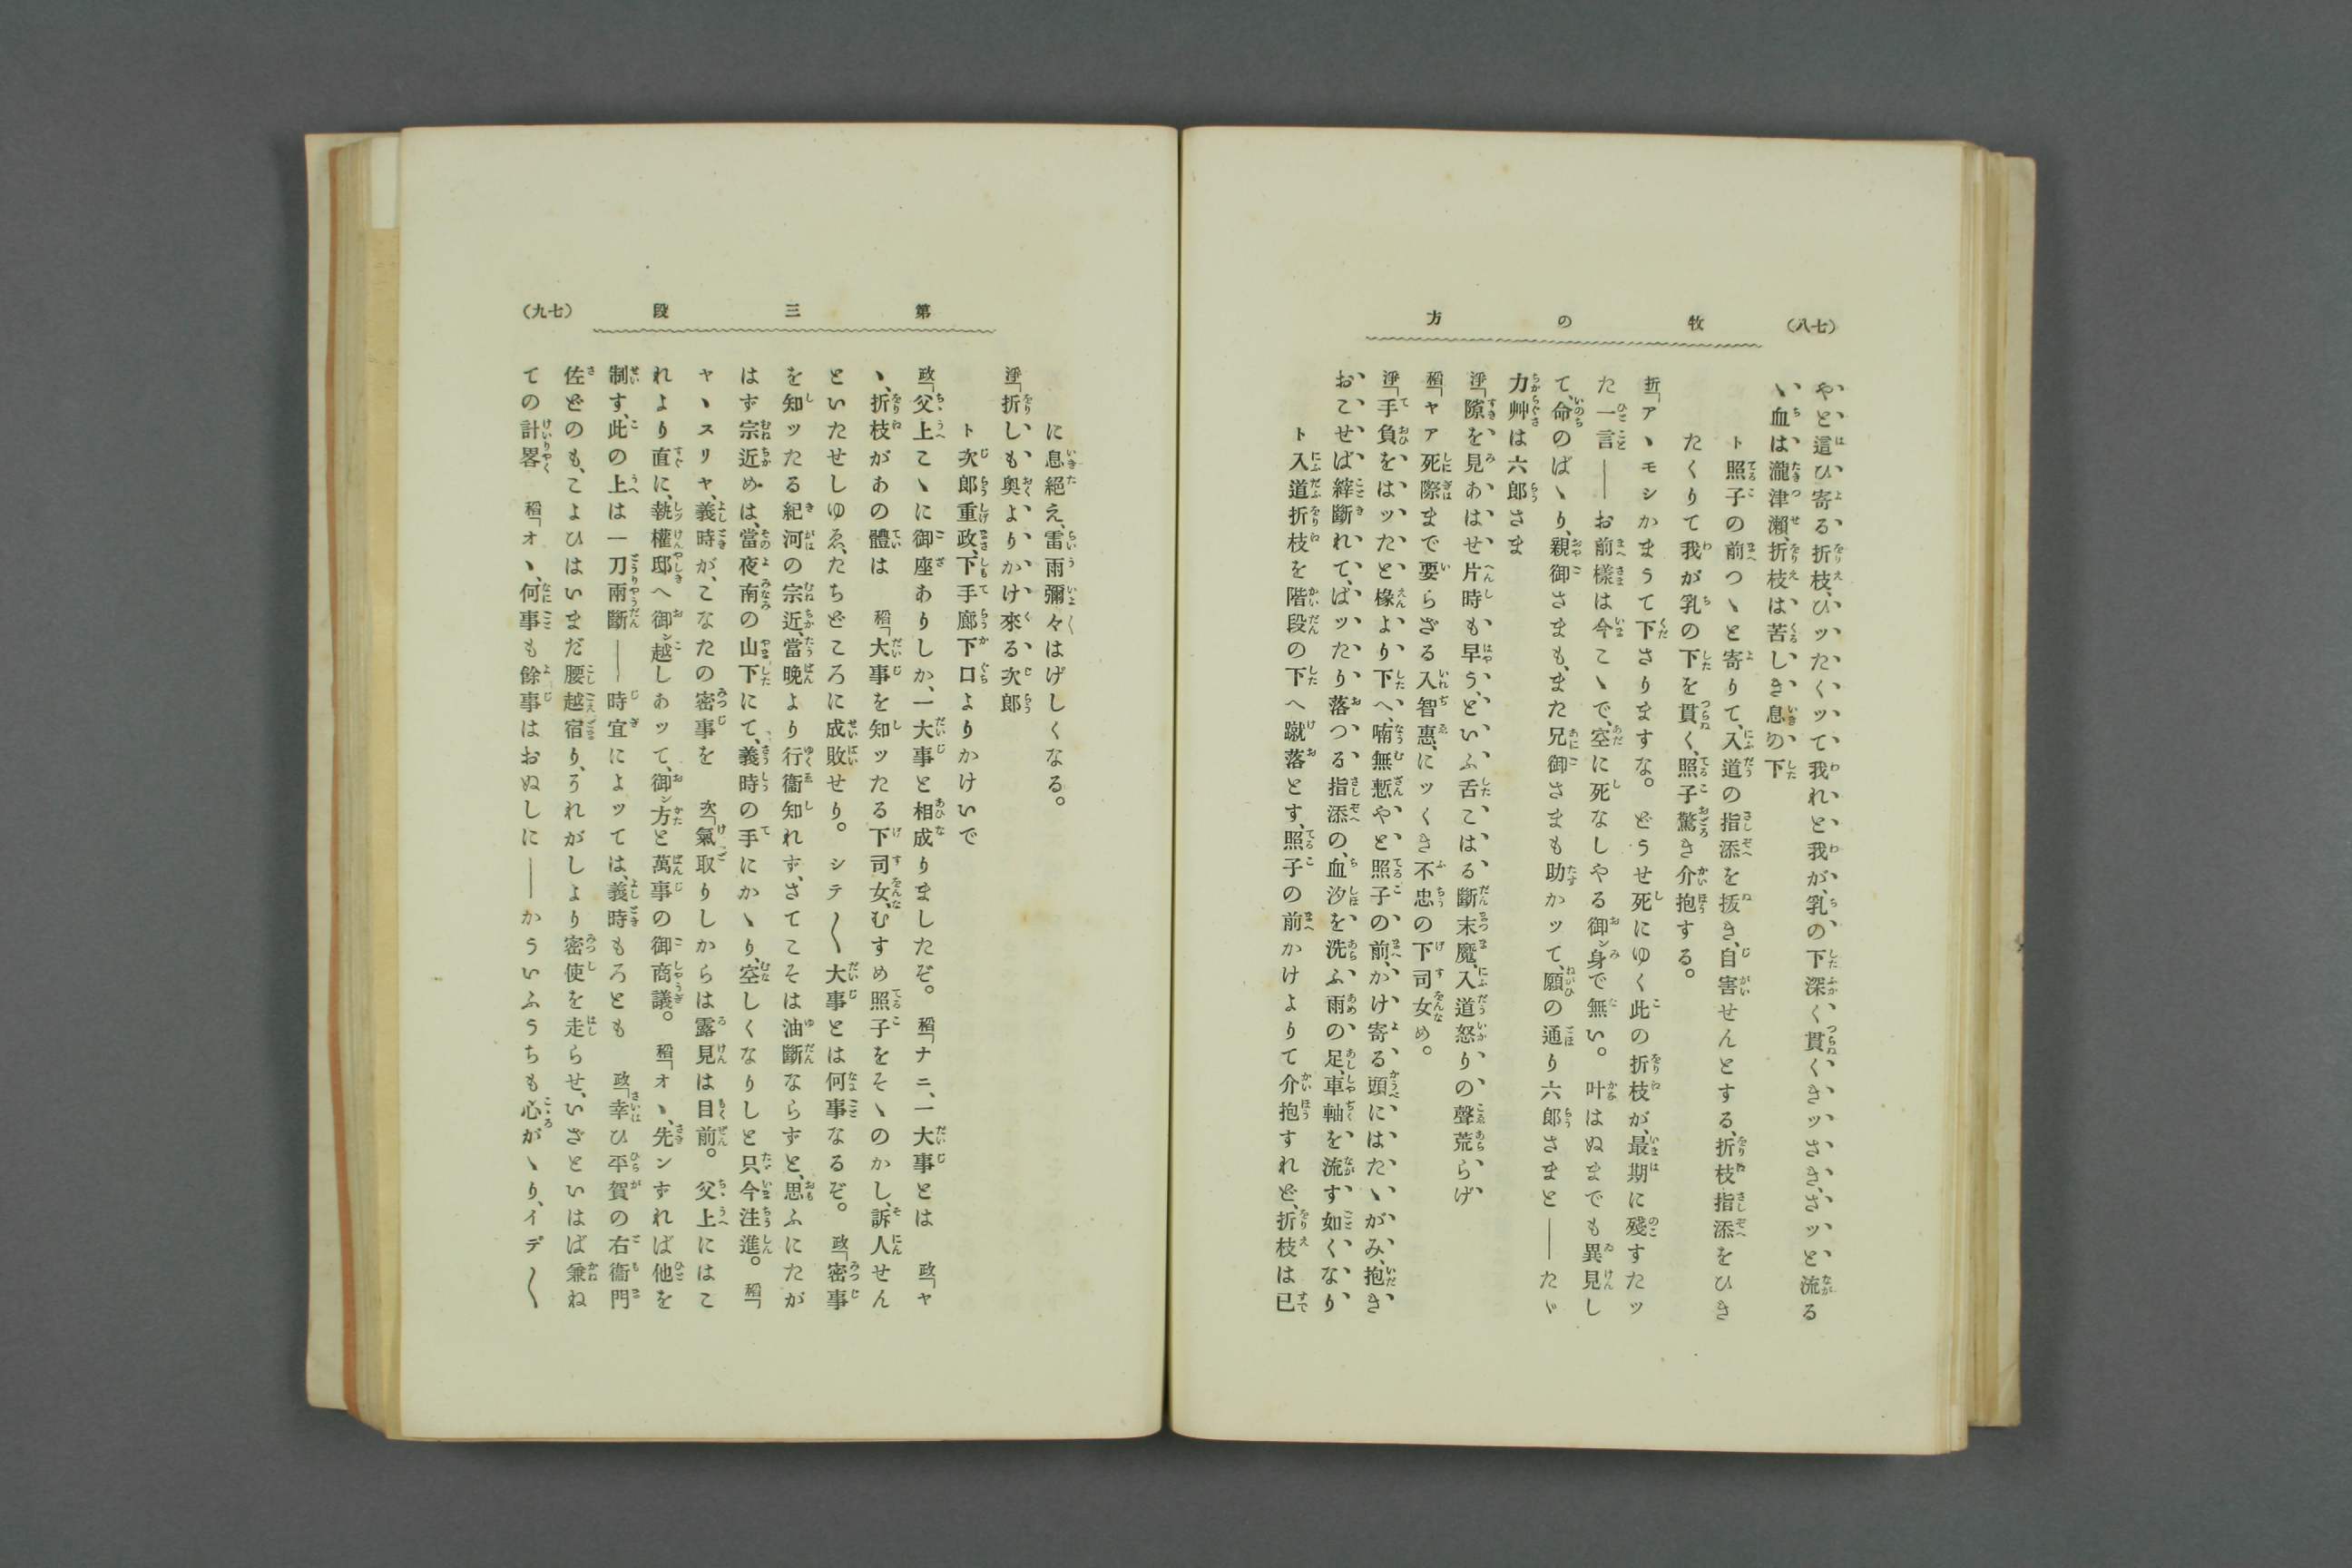 (七八)
牧の方
やと這ひ寄る折枝、ひッたくッて我れと我が、乳の下深く貫くきッさき、さッと流る
ヽ血は瀧津瀬、折枝は苦しき息の下
ト照子の前つヽと寄りて、入道の指添を抜き、自害せんとする、折枝指添をひき
たくりて我が乳の下を貫く、照子驚き介抱する。
折「アヽモシかまうて下さりますな。どうせ死にゆく此の折枝が、最期に殘すたッ
た一言――お前樣は今こヽで、空に死なしやる御ン身で無い。叶はぬまでも異見し
て、命のばヽり、親御さまも、また兄御さまも助かッて、願の通り六郎さまと――たゞ
力艸は六郎さま
淨「隙を見あはせ片時も早う、といふ舌こはる斷末魔、入道怒りの聲荒らげ
稻「ヤア死際まで要らざる入智惠、にッくき不忠の下司女め。
淨「手負をはッたと椽より下へ、喃無慙やと照子の前、かけ寄る頭にはたヽがみ、抱き
おこせば縡斷れて、ばッたり落つる指添の、血汐を洗ふ雨の足、車軸を流す如くなり
ト入道折枝を階段の下へ蹴落とす、照子の前かけよりて介抱すれど、折枝は已
第三段
(七九)
に息絕え、雷雨彌々はげしくなる。
淨「折しも奧よりかけ來る次郎
ト次郎重政、下手廊下口よりかけいで
政「父上こヽに御座ありしか、一大事と相成りましたぞ。　稻「ナニ、一大事とは　政「ヤ
ヽ、折枝があの體は　稻「大事を知ッたる下司女、むすめ照子をそヽのかし、訴人せん
といたせしゆゑ、たちどころに成敗せり。シテ〳〵大事とは何事なるぞ。　政「密事
を知ッたる紀河の宗近、當晩より行衞知れず、さてこそは油斷ならずと、思ふにたが
はず宗近めは、當夜南の山下にて、義時の手にかヽり、空しくなりしと只今注進。　稻「
ヤヽスリヤ、義時が、こなたの密事を　次「氣取りしからは露見は目前。父上にはこ
れより直に、執權邸へ御ン越しあッて、御ン方と萬事の御商議。　稻「オヽ、先ンずれば他を
制す、此の上は一刀兩斷――時宜によッては、義時もろとも　政「幸ひ平賀の右衞門
佐どのも、こよひはいまだ腰越宿り、うれがしより密使を走らせ、いざといはば兼ね
ての計畧　稻「オヽ、何事も餘事はおぬしに――かういふうちも心がヽり、イデ〳〵